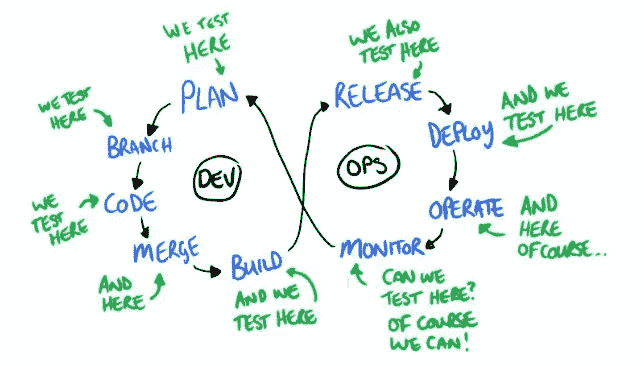 WE TEST
HERE
PLAN
WE TEST
HERE
BRANCH
WE
TEST
HERE
CODE
AND
HERE
MERGE
BUILD
AND WE
TEST HERE
DEV
WE ALSO
TEST HERE
RELEASE
AND WE
TEST HERE
DEPLOY
OPS
OPERATE
AND
HERE
OF COURSE...
MONITOR
CAN WE
TEST HERE?
OF COURSE
WE CAN!